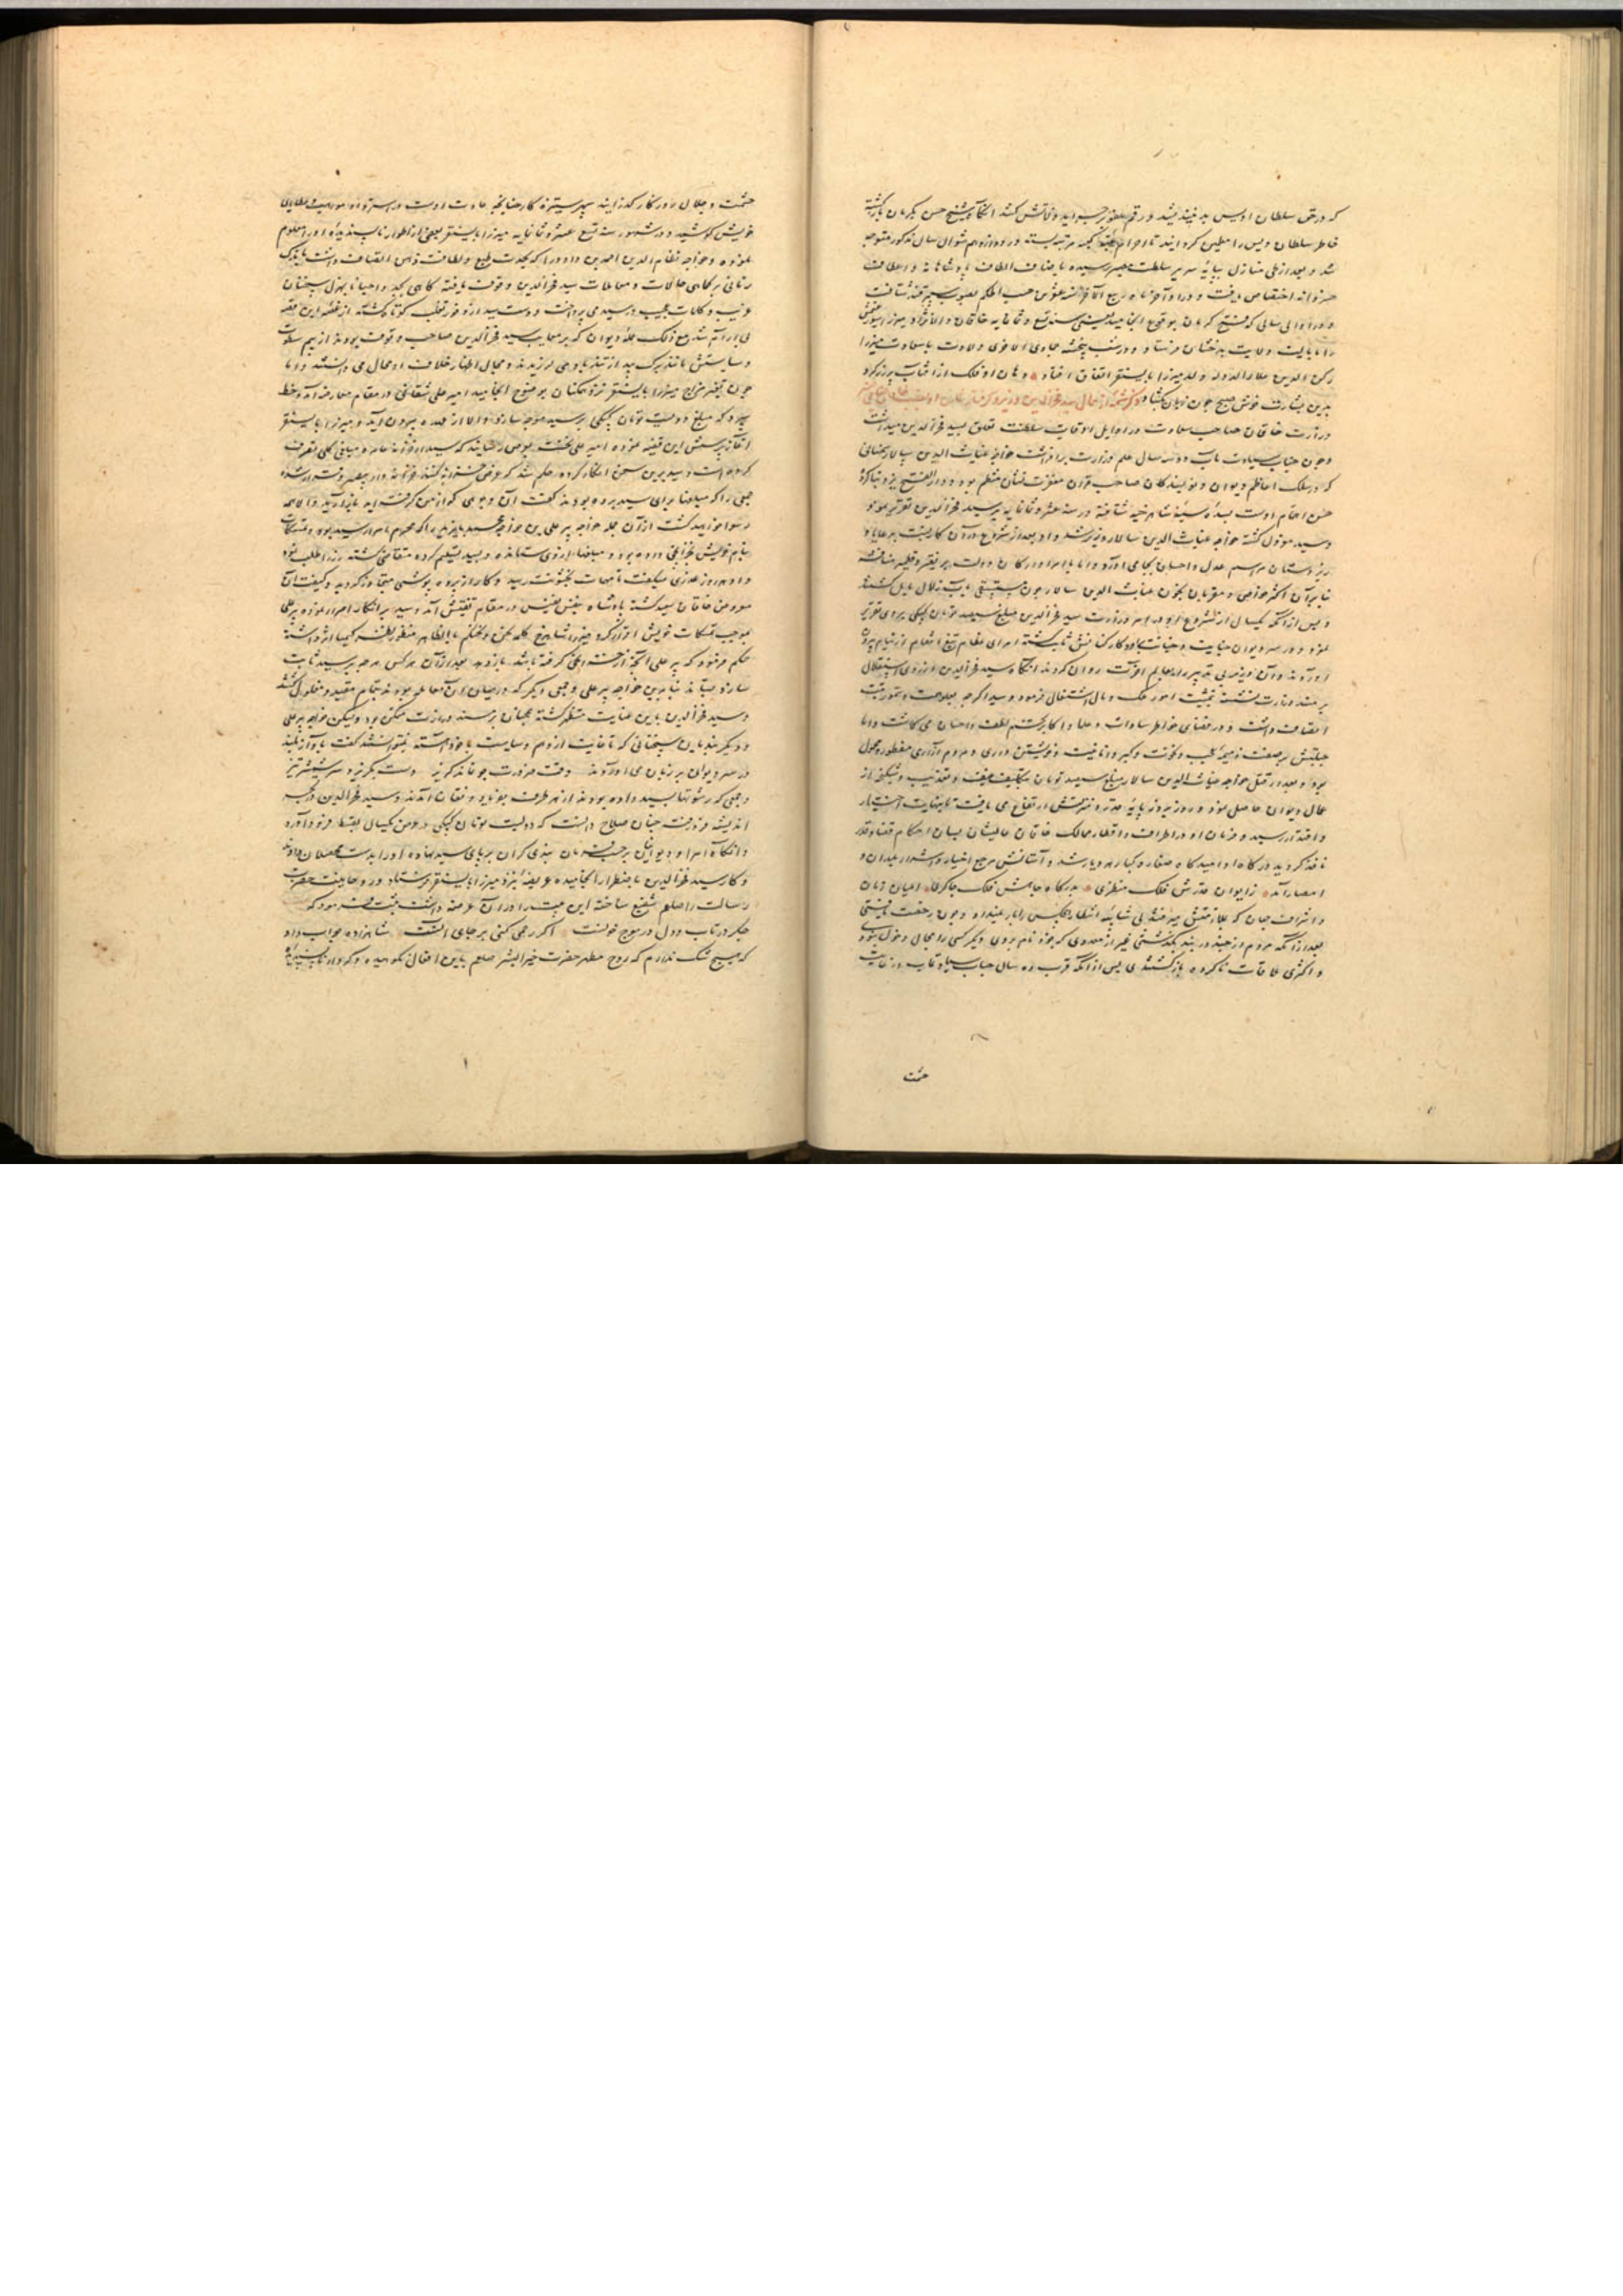 که در حق سلطان اویس بد نیندیشد و رقم عفو بر جراید زلاتش کشد آنگاه شیخ حسن بکرمان بازگشته
خاطر سلطان اویس را مطمئن گردانید تا احرام کعبه مرتبه بسته در دوازدهم شوال سال مذکور متوجه
شد و بعد از طی منازل بپایه سریر سلطنت مصیر رسیده باصناف الطاف پادشاهانه و اعطاف
خسروانه اختصاص یافت و در اواخر ماه ربیع الآخر سنه عشرین حسب الحکم بصوب سمرقند شتافت
و در اوایل سالی که فتح کرمان بوقوع انجامید یعنی سنه تسع و ثمانمایه خاقان
را بایالت ولایت بدخشان فرستاد و در شب پنجشنبه جمادی الاخری ولادت باسعادت میرزا
رکن الدین علاء الدوله ولد میرزا بایسنقر اتفاق افتاد دهان او فلک از آفتاب پر زر کرد
بدین بشارت خوش صبح چون زبان بگشاد ذکر شمه از حال سید فخرالدین وزیر
وزارت خاقان صاحب سعادت در اوایل اوقات سلطنت تعلق بسید فخرالدین میداشت
و چون جناب سیادت مآب دو سه سال علم وزارت برافراشت خواجه غیاث الدین سالار سمنانی
که در سلک اعاظم دیوان و نویسندگان صاحب قران مغفرت نشان منتظم بود
حسن اهتمام اوست بسده سنیه شاهرخیه شتافته در سنه عشر و ثمانمایه بر سید فخرالدین تقریر نمود
و سید معزول گشته خواجه غیاث الدین سالار وزیر شد و او بعد از شروع در آن کار نسبت برعایا و
زیردستان مراسم عدل و احسان بجای آورد و اما با امرا و ارکان دولت
بنابر آن اکثر خواص و مقربان بخون غیاث الدین سالار چون مستسقی بآب زلال مایل گشتند
و پس از آنکه یکسال از شروع او در امر وزارت سید فخرالدین مبلغ سیصد تومان کپکی بروی تقریر
نمود و در سر دیوان جنایت و خیانت او و کارکنانش ثابت گشته امرای عظام تیغ انتقام از نیام بیرون
آوردند و آن وزیر بی تدبیر را بعالم آخرت روان کردند آنگاه سید فخرالدین از روی استقلال
بر مسند وزارت نشسته بتمشیت امور ملک و مال اشتغال فرمود و سید اگرچه بعلو همت و سمو رتبت
اتصاف داشت و در فضای خواطر سادات و علما و اکابر تخم لطف و احسان می کاشت و اما
جبلتش بر صفت ذمیمه عجب و نخوت و کبر و انانیت و خویشتن داری و مردم آزاری مفطور و مجبول
بود و بعد از قتل خواجه غیاث الدین سالار مبلغ سیصد تومان بتکالیف عنیف و تعذیب و شکنجه از
عمال دیوان حاصل نمود و روز بروز پایه قدر و منزلتش ارتفاع می یافت تا بنهایت اختیار
و اقتدار رسید و فرمان او در اطراف و اقطار ممالک خاقان عالیشان بسان احکام قضا و قدر
نافذ گردید درگاه او امیدگاه صغار و کبار هر دیار شد و آستانش مرجع اخیار و اشرار بلدان و
امصار آمد ز ایوان قدرش فلک منظری بدرگاه جاهش فلک چاکری اعیان زمان
و اشراف جهان که بملازمتش میرفتند بی شایبه انتظار هیچکس را بار نمیداد و چون رخصت یافتی
بعد از آنکه مردم از چند در بند بگذشتی غیر از معدودی که بخود نام بردی دیگر کسی را مجال دخول نبودی
و اکثری ملاقات ناکرده بازگشتندی پس از آنکه قرب ده سال جناب سیادت مآب در غایت
حشمت
حشمت و جلال روزگار گذرانید سپهر ستیزه کار چنانچه عادت اوست در استرداد مواهب و عطایای
خویش کوشید و در شهور سنه تسع عشر و ثمانمایه میرزا بایسنقر بعضی از اطوار ناپسندیده او را معلوم
نموده و خواجه نظام الدین احمد بن داود را که بحدت طبع و لطافت ذهن اتصاف داشت باندک
زمانی بر کماهی حالات و معاملات سید فخرالدین وقوف یافته گاهی بجد و احیانا بهزل سخنان
غریب و کلمات عجیب در سید می پرداخت و دست سید از وفور تغلب کوتاه گشته از غصه این قصه
بی آرام شد مع ذلک عمله دیوان که بر معایب سید فخرالدین صاحب وقوف بودند از بیم سطوت
و سیاستش مانند برگ بید از تند باد می لرزیدند و مجال اظهار خلاف او محال می دانستند و اما
چون تغیر مزاج میرزا بایسنقر نزد همگنان بوضوح انجامید امیر علی شقانی در مقام معارضه آمد و خط
سپرد که مبلغ دویست تومان کپکی بر سید موجه سازد و الا از عهده بیرون آید و میرزا بایسنقر
آغاز پرسش این قضیه نموده امیر علی نخست بعرض رسانید که سید از خزانه عامره مبلغی کلی تصرف
کرده است و سید بر این سخن انکار کرده حکم شد که عرض خزانه کنند
جمعی را که مبلغها برای سید برده بودند گفت آن وجوهی که از من گرفته اید باز آرید و الا همه
رسوا خواهید گشت از آن جمله خواجه پیر علی بن خواجه محمد بایزید را که محرم اسرار سید بود و تمسکات
بنام خویش بخزانچی داده بود و مبلغها از وی ستانده و بسید تسلیم کرده متقاضی گشته زر طلب نمود
و او هر روز عذری میگفت تا مهمات بخشونت رسید و کار از پرده پوشی متجاوز گردید و کیفیت آن
معروض خاقان سعید گشته پادشاه بنفس نفیس در مقام تفتیش آمد و سید بر انکار اصرار نموده پیر علی
بموجب تمسکات خویش اقرار کرد میرزا شاهرخ
حکم فرمود که پیر علی آنچه از خزانچی گرفته باشد باز دهد بعد از آن هر کس هرچه بر سید ثابت
سازد بستاند بنابرین خواجه پیر علی و جمعی دیگر که در میان آن معامله بودند بتمام مقید و مغلول گشتند
و سید فخرالدین باین عنایت مستظهر گشته همچنان بر مسند وزارت متمکن بود ولیکن خواجه پیر علی
و دیگر بندیان سخنانی که تا غایت از وهم و سیاست با خود آهسته نتوانستند گفت بآواز بلند
در سر دیوان بر زبان می آوردند وقت ضرورت چو نماند گریز دست بگیرد سر شمشیر تیز
و جمعی که رشوتها بسید داده بودند از هر طرف بفریاد و فغان آمدند و سید فخرالدین در بحر
اندیشه فرو رفت چنان صلاح دانست که دویست تومان کپکی در عرض یکسال بقسط فرود آورد
و آنگاه امرا و دیوانیان بر حسب فرمان بندی گران بر پای سید نهاده او را بدست محصلان دادند
و کار سید فخرالدین باضطرار انجامیده عریضه نزد میرزا بایسنقر فرستاد و روحانیت حضرت
رسالت را صلعم شفیع ساخته این بیت را در آن عرضه داشت ثبت نمود که
جگر در تاب و دل در موج خونست اگر رحمی کنی بر جای آنست شاهزاده جواب داد
که هیچ شک ندارم که روح مطهر حضرت خیر البشر صلعم باین افعال نکوهیده و کردار ناپسندیده